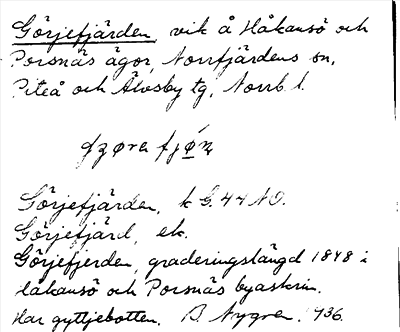 Görjefjärden, vik å Håkansö och
Porsnäs ägor, Norrfjärdens sn,
Piteå och Älvsby tg, Norrb. l.
Görjefjärden, k G. 44 NO.
Görjefjärd, ek.
Görjefjerden, graderingslängd 1848 i
Håkansö och Porsnäs byaskrin.
Har gyttjebotten. B. Nygren. 1936.